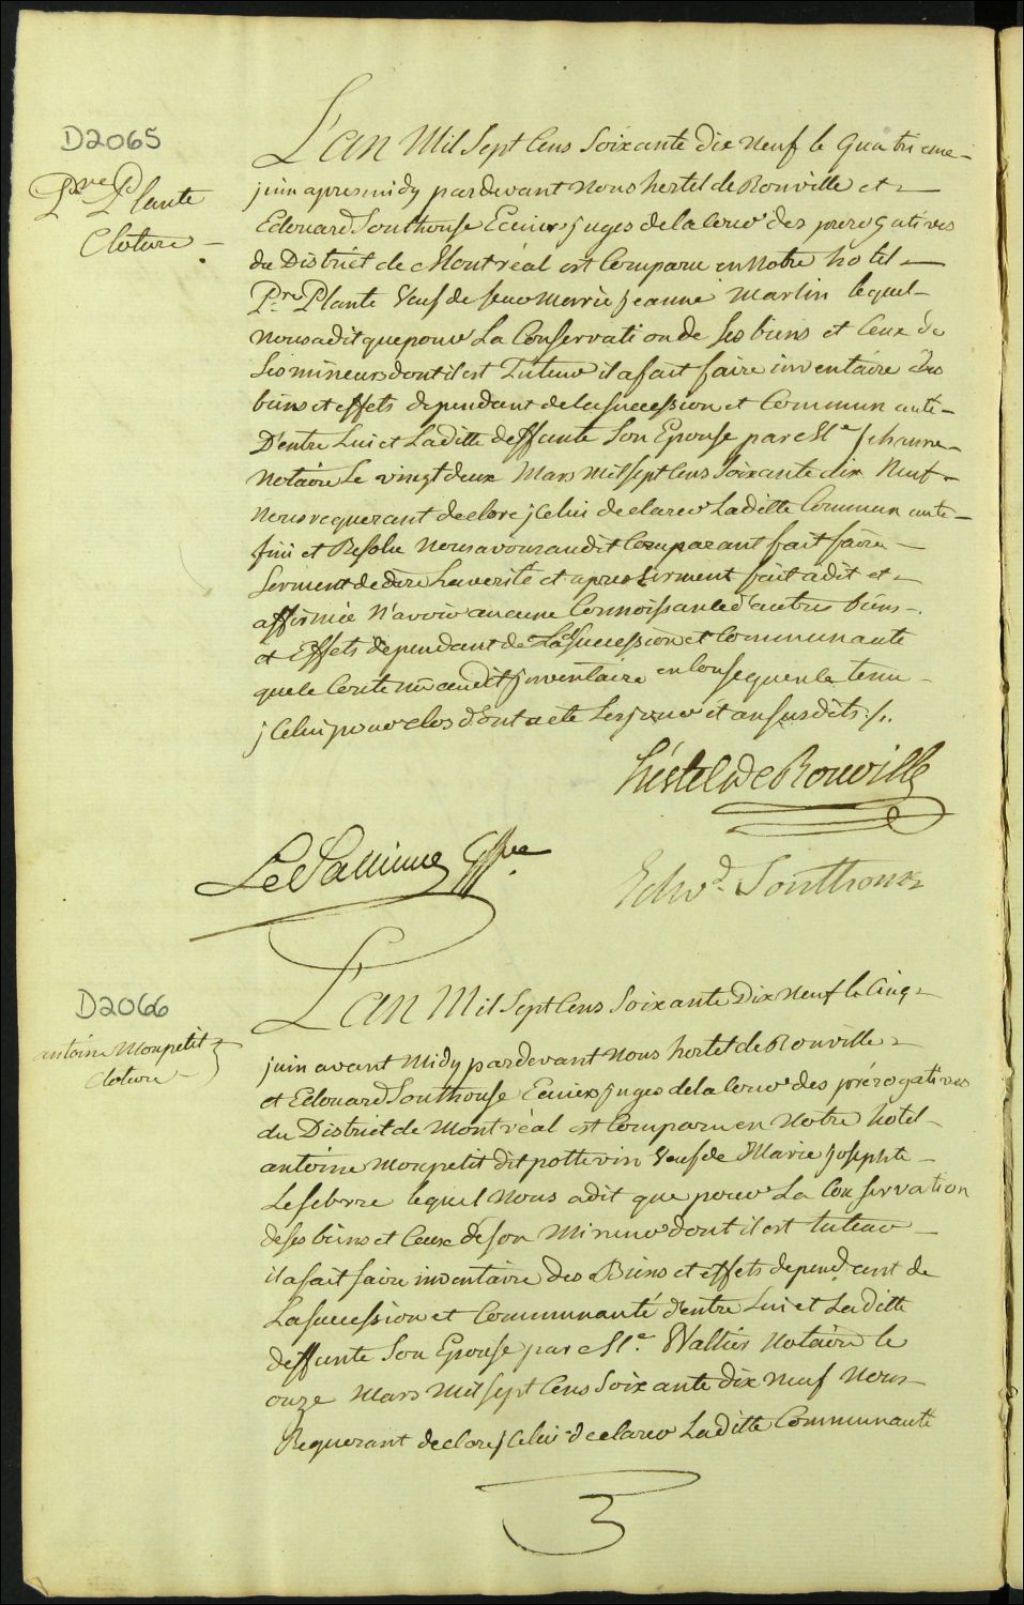 D2065
Pre Plante
Cloture
L'an Mil Sept Cens Soixante Dix Neuf le quatrieme
juin apres midy pardevant Nous hertel de Rouville et
Edouard Southouse Ecuiers juges de la Cour des prerogatives
du District de Montréal est Comparu en Notre hotel
Pre Plante Veuf de feue Marie jeanne Martin lequel
Nous a dit que pour La Conservation de ses biens et Ceux de
Ses mineurs dont il est Tuteur il a fait faire inventaire des
biens et effets dependant de la succession et Communauté
D'entre Lui et Laditte deffunte Son Epouse par Me
Notaire Le vingt deux Mars Mil sept Cens Soixante dix Neuf
Nous requerant de clore jcelui declarer Laditte Communauté
fini et Resolue Nous avons audit Comparant fait faire
Serment de dire La verité et apres serment fait a dit et
affirmée N'avoir aucune Connoissance d'autres biens
et Effets dependant de Lad succession et Communauté
que le Contenu audit jnventaire en Consequence tenu
jcelui pour clos dont acte Les jour et an susdits /.
hertel de Rouville
Gffier
Edwd. Southouse
D2066
antoine Monpetit
Cloture
L'an Mil Sept Cens Soixante Dix Neuf le Cinq
juin avant Midy pardevant Nous hertel de Rouville
et Edouard Southouse Ecuiers juges de la Cour des prérogatives
du District de Montréal est Comparu en Notre hotel
antoine Monpetit dit pottevin Veuf de Marie josephte
Lefebvre lequel Nous a dit que pour La Conservation
de ses biens et Ceux de son Mineur dont il est tuteur
il a fait faire inventaire des Biens et effets dependant de
La succession et Communauté d'entre Lui et Laditte
deffunte Son Epouse par Me. Notaire le
onze Mars Mil sept Cens Soixante dix neuf Nous
Requerant de clore jcelui declarer Laditte Communauté